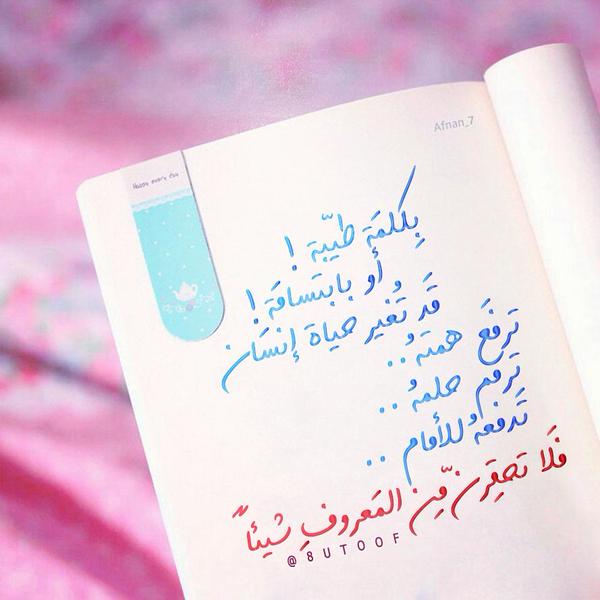 Afnan_7
Happy every day
بِكلمَة طيّبة !
أو بابتسامَة !
قَد تُغير حياة إنسَان
تَرفَع همتهُ ..
تَرمم حلمهُ ..
تَدفعهُ للأمام ..
فَلا تحقِرن مِّن المَعروفِ شيئاً
@8UTOOF